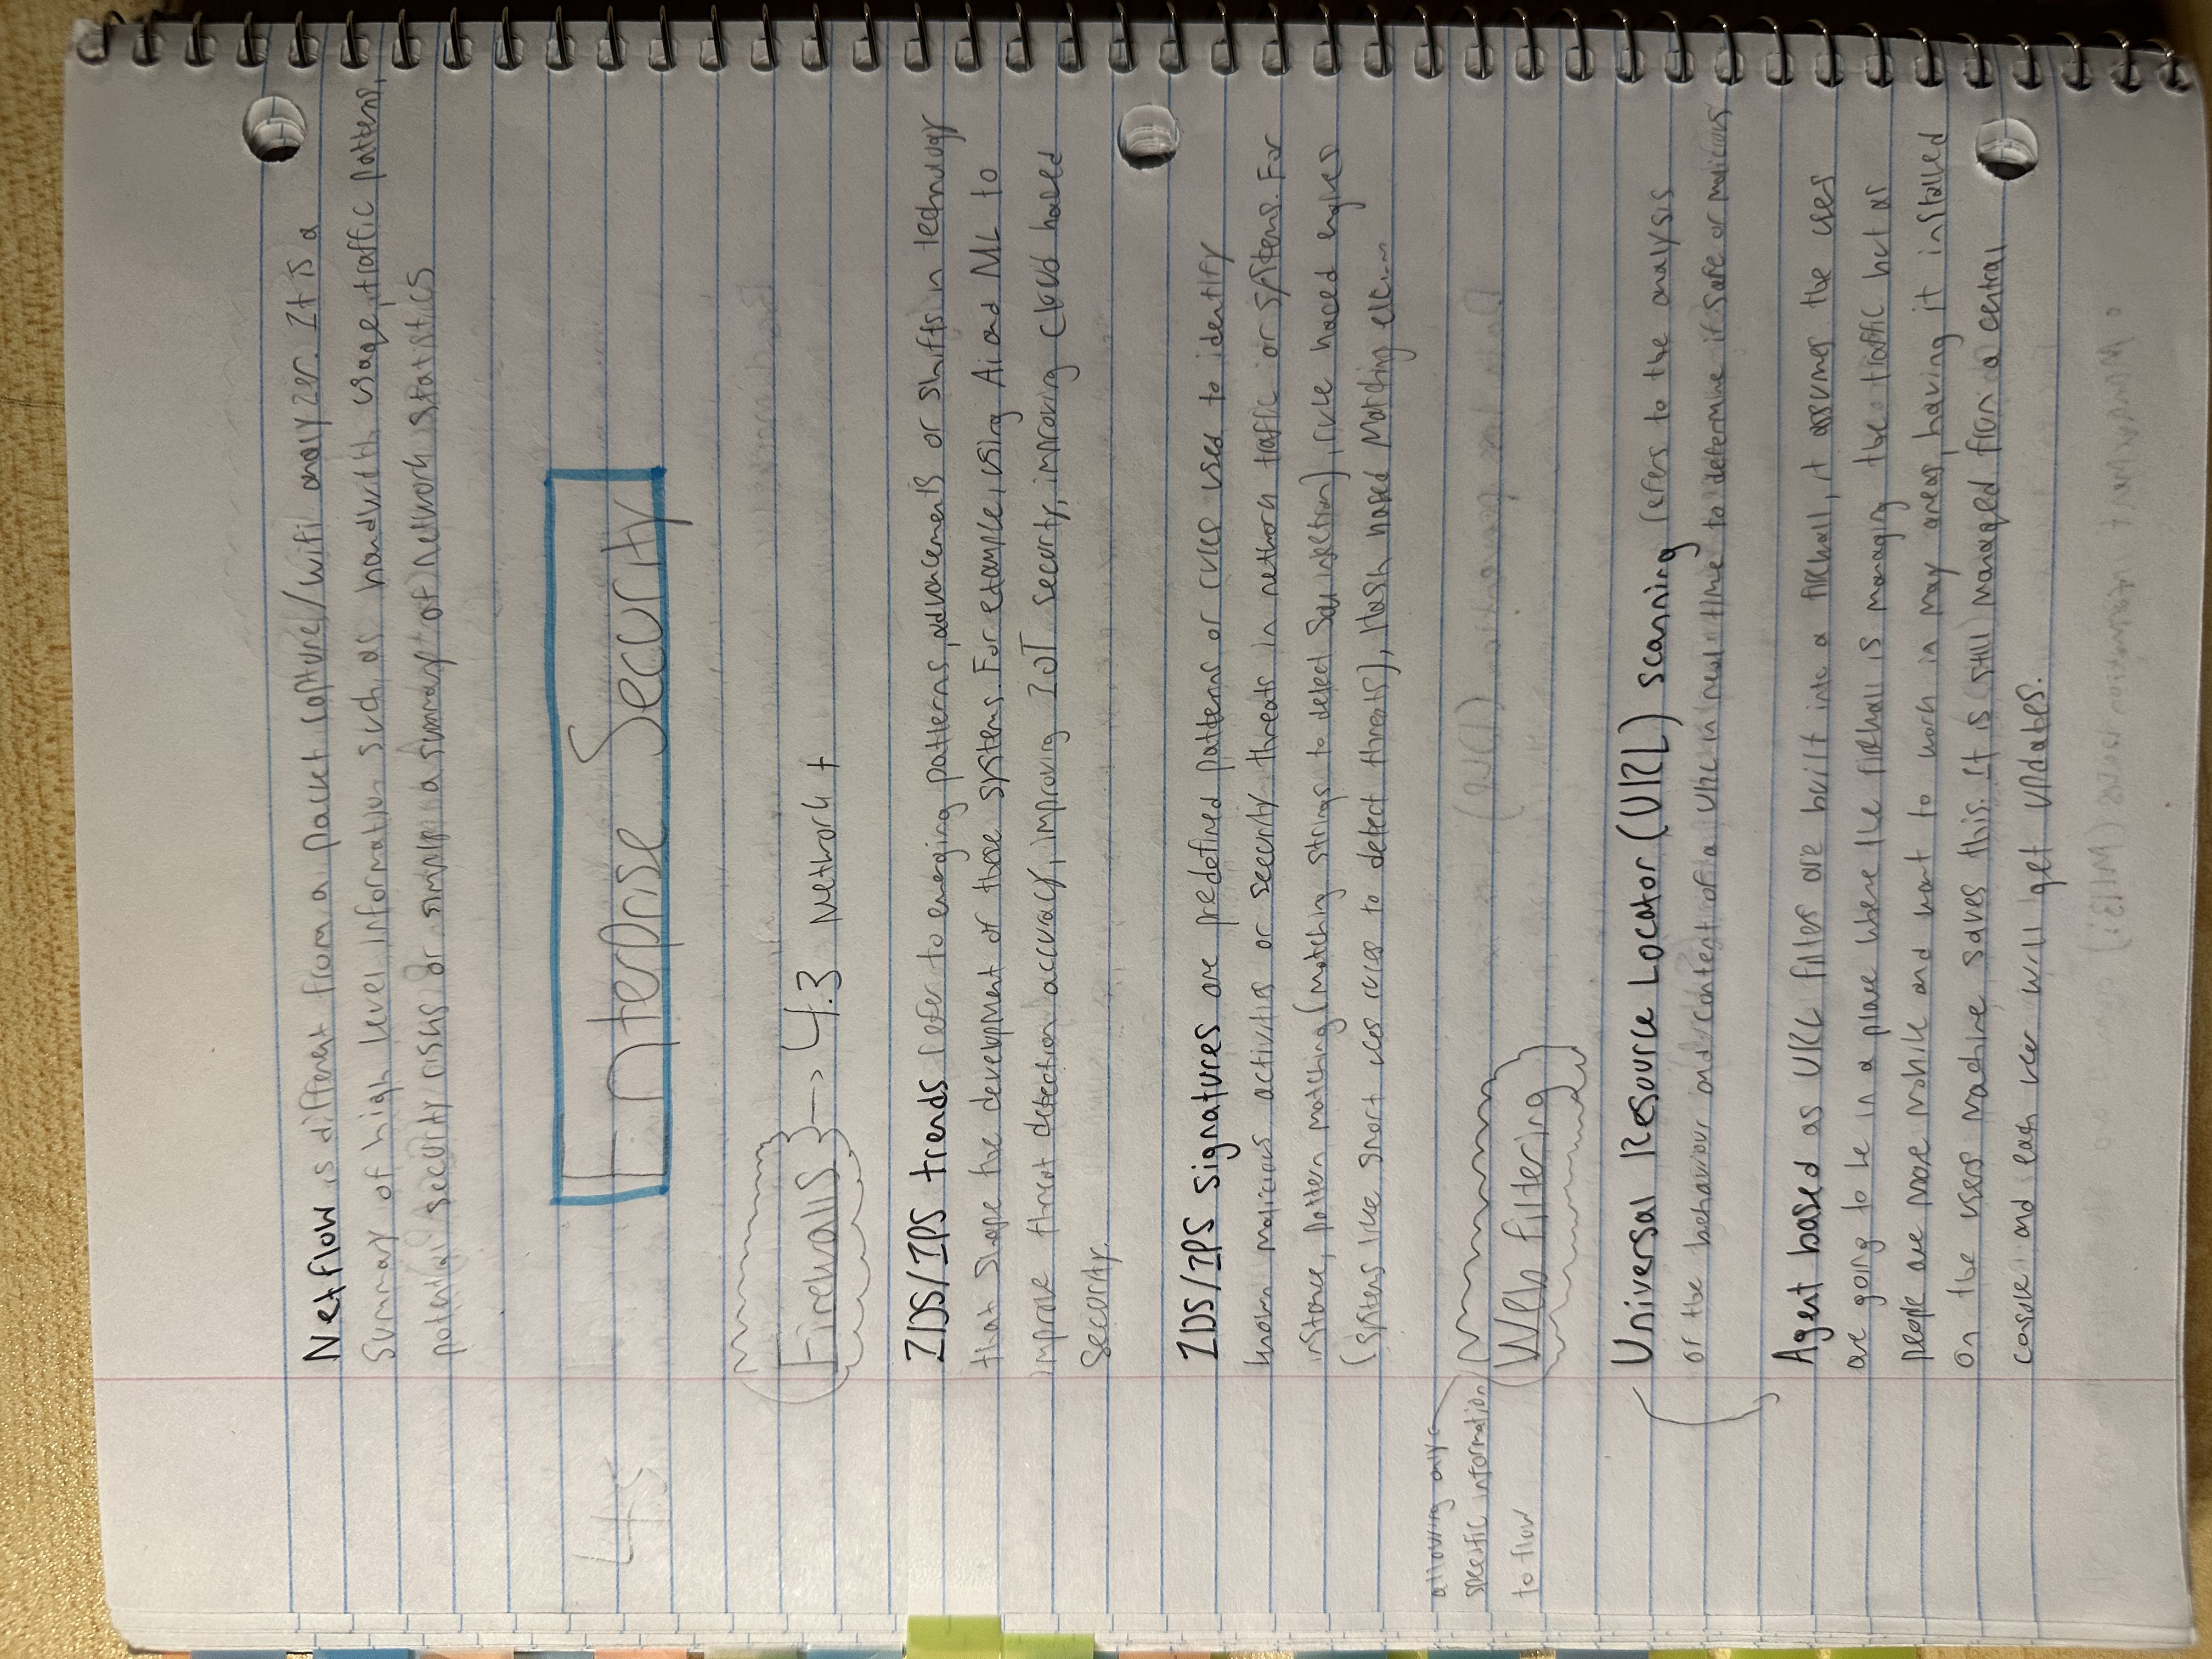 Netflow is different from a packet capture/wifi analyzer. It is a
summary of high level information such as bandwidth usage, traffic patterns,
potential security risks or simply a summary of network statistics
4.5
Enterprise Security
Firewalls -> 4.3 Network +
IDS/IPS trends refer to emerging patterns, advancements or shifts in technology
that shape the development of these systems. For example, using Ai and ML to
improve threat detection accuracy, improving IOT security, improving cloud based
security.
IDS/IPS signatures are predefined patterns or rules used to identify
known malicious activities or security threats in network traffic or systems. For
instance, pattern matching (matching strings to detect SQL injection), rule based engines
(systems like snort uses rules to detect threats), Hash based Matching etc...
allowing only
specific information
to flow
Web filtering
Universal Resource Locator (URL) scanning refers to the analysis
of the behaviour and content of a URL in real time to determine if safe or malicious
Agent based as URL filters are built into a firewall, it assumes the users
are going to be in a place where the firewall is managing the traffic but as
people are more mobile and want to work in may areas, having it installed
on the users machine saves this. It is still managed from a central
console and each user will get updates.